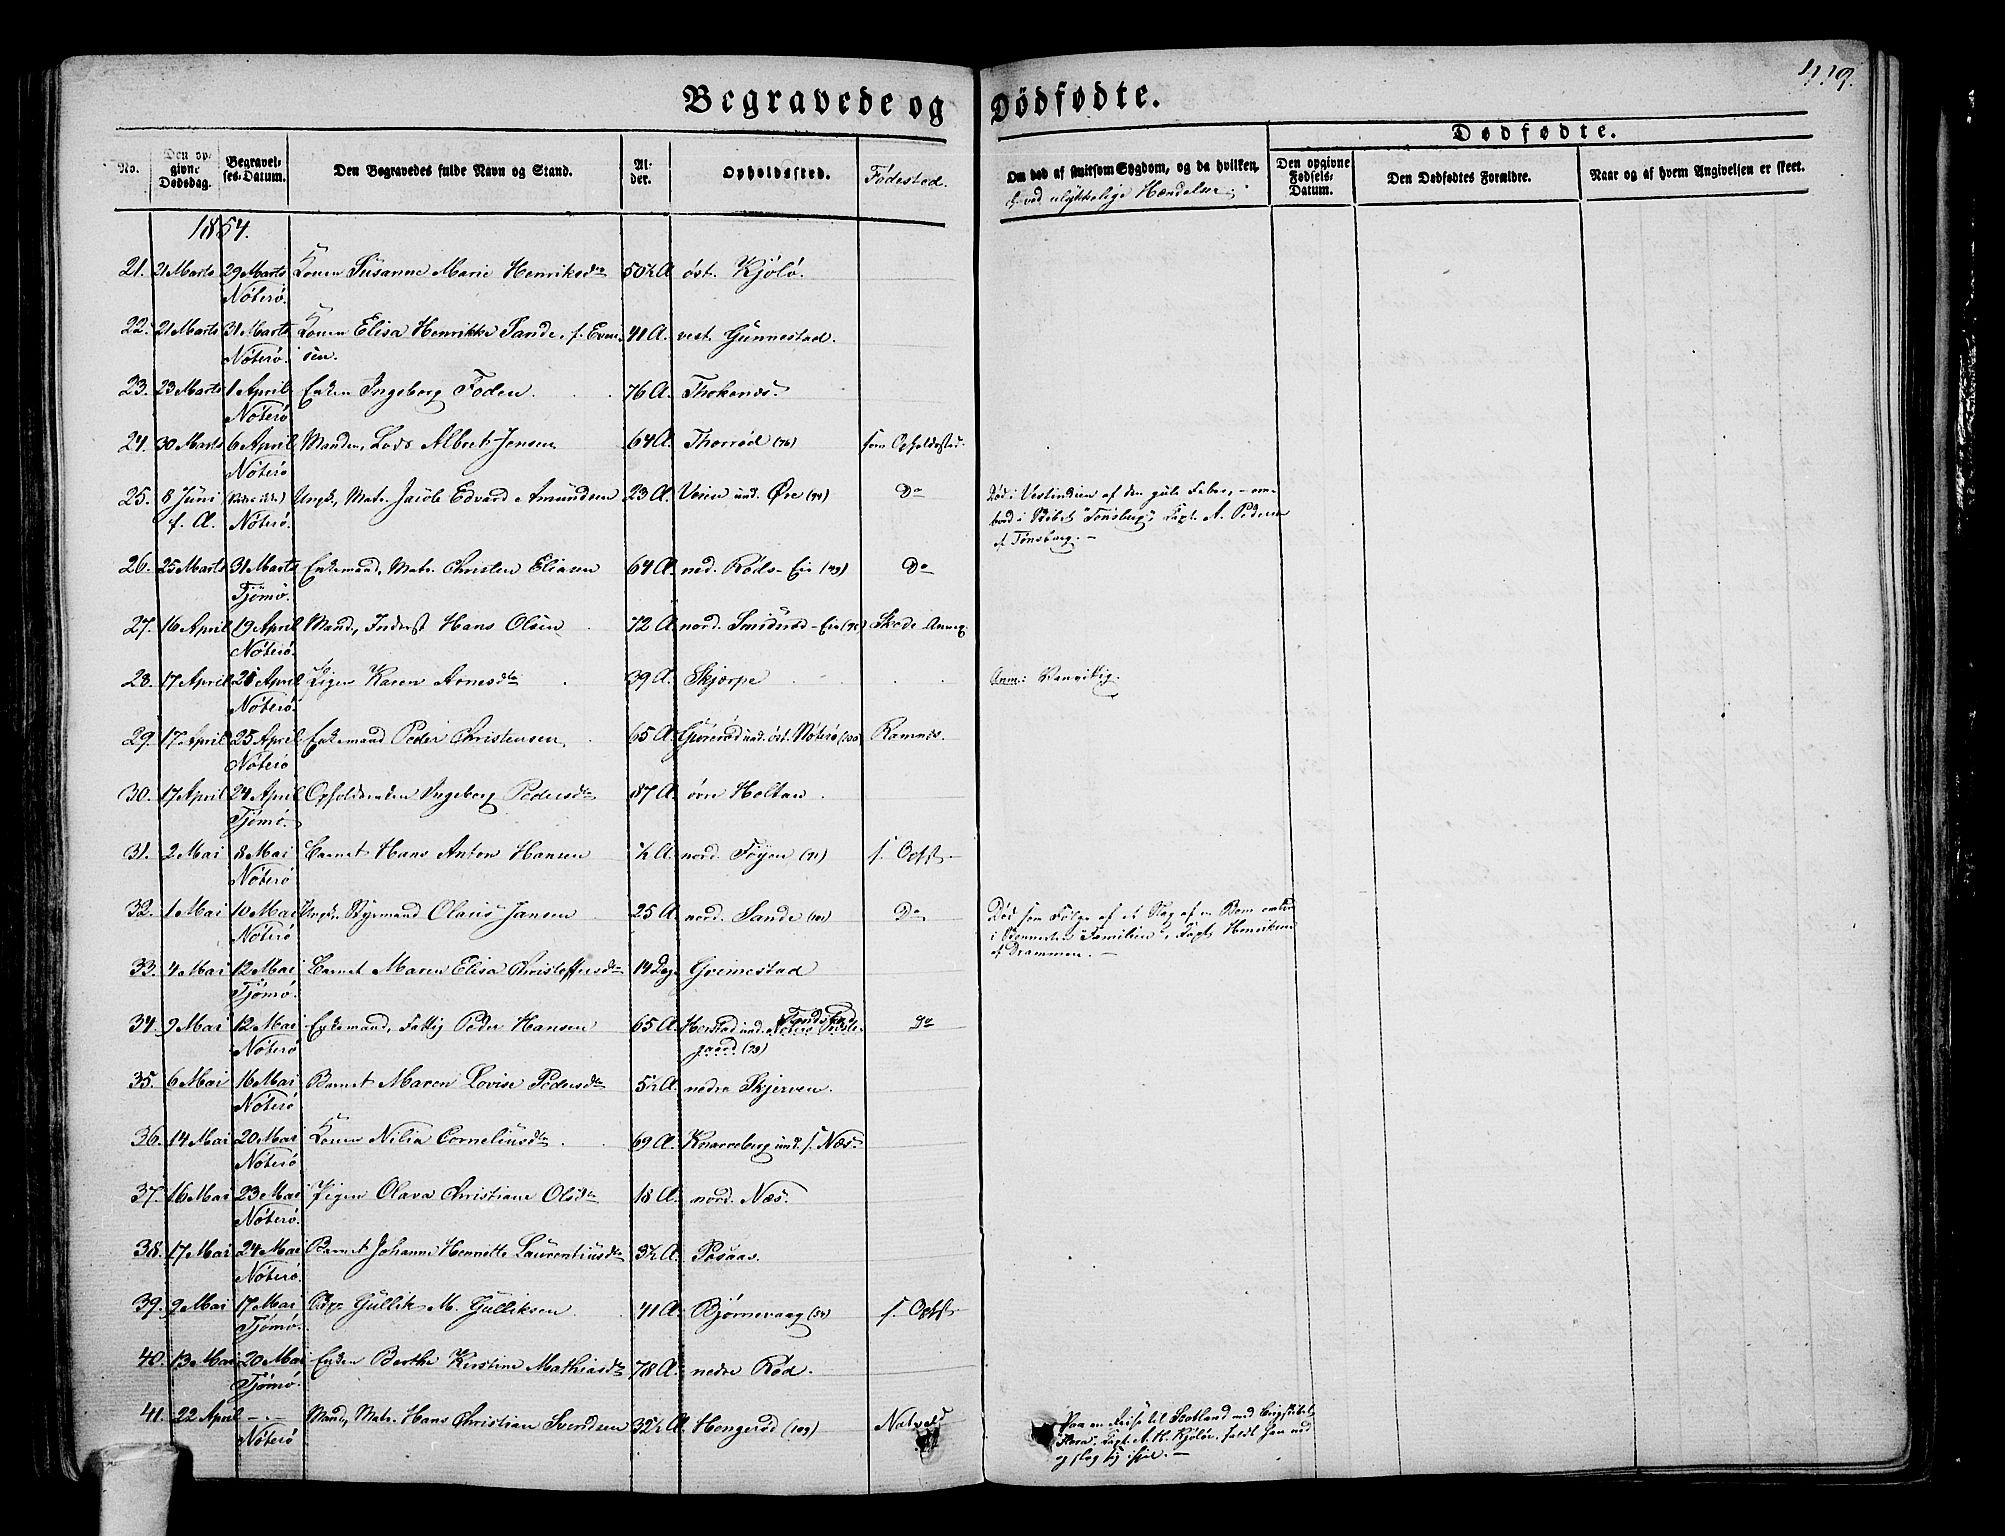 Begravede og Dødfødte.
119.
No.
Den opgivne Dødsdag.
Begravelses-Datum.
Den Begravedes fulde Navn og Stand.
Alder.
Opholdssted.
Fødested.
Om død af smitsom Sygdom, og da hvilken,
ved ulykkelige Hændelser
Dødfødte.
Den opgivne Fødsels-Datum.
Den Dødfødtes Forældre.
Naar og af hvem Angivelsen er skeet.
1854.
21. 21 Marts 29 Marts Nøterø. Konen Susanne Marie Henriksdtr 50½ A. øst. Kjølø.
22. 21 Marts 31 Marts Nøterø. Konen Elisa Henrikke Sande, f. Evensen. 41 A. vest. Gunnestad.
23. 23 Marts 1 April Nøterø Enken Ingeborg Foden. 76 A. Thokenæs.
24. 30 Marts 6 April Nøterø Manden, Lods Albret Jensen 64 A. Thorrød (76) som Opholdssted.
25. 8 Juni f. A. Nøterø. Ungk., Matr. Jacob Edvard Amundsen 23 A. und. Øre Do Død i Vestindien af den gule Feber, ombord i Skibet "Tønsberg", Capt. A. Pedersen af Tønsberg.
26. 25 Marts 31 Marts Tjømø. Enkemand, Matr. Christen Eliasen 64 A. ned. Røds-Eie (43) Do
27. 16 April 19 April Nøterø. Mand, Inderst Hans Olsen 72 A. nord. Smidsrød-Eie Skode Annex
28. 17 April 21 April Nøterø. Pigen Karen Arnesdtr 39 A. Skjærpe Anm: Vanvittig.
29. 17 April 25 April Nøterø Enkemand Peder Christensen 65 A. und. øst. Nøterø Ramnæs.
30. 17 April 24 April Tjømø. Ingeborg Pedersdtr 87 A. øvre Holtan.
31. 2 Mai 8 Mai Nøterø Barnet Hans Anton Hansen ½ A. nord. Føyen (71) s. Opst.
32. 1 Mai 10 Mai Nøterø Ungk. Styrmand Olaus Jansen 25 A. nord. Sande (101) Do Død som Følge af et Slag af en Bom ombord i Skonnerten "Familien", Capt. Henriksen af Drammen.
33. 4 Mai 12 Mai Tjømø. Barnet Maren Elisa Christoffersdtr 14 Dage Grimestad
34. 9 Mai 12 Mai Nøterø Enkemand, Fattig Peder Hansen 65 A. Herstad und. Nøterø Præstegaard (73) Do
35. 6 Mai 16 Mai Nøterø Barnet Maren Lovise Pedersdtr 5½ A. nedre Skjerven.
36. 14 Mai 20 Mai Nøterø Konen Nilia Corneliusdtr 69 A. Knarreberg und. s. Næs.
37. 16 Mai 23 Mai Nøterø. Pigen Olava Christiane Olsdtr 18 A. nord. Næs.
38. 17 Mai 24 Mai Nøterø. Barnet Johanne Henrette Laurentiusdtr 3½ A. Røsaas.
39. 9 Mai 17 Mai Tjømø. Gullik M. Gulliksen 41 A. Bjørnevaag (54) s. Opst.
40. 13 Mai 20 Mai Tjømø. Enken Berthe Kirstine Mathiasdtr 78 A. nedre Rød.
41. 22 April Nøterø Mand, Matr. Hans Christian Svendsen 32½ A. Hengerød (109) Paa en Reise til Scotland med Brigskibet Flora, Capt. A. H. Kjøløe, faldt han ned og slog sig ihjel.